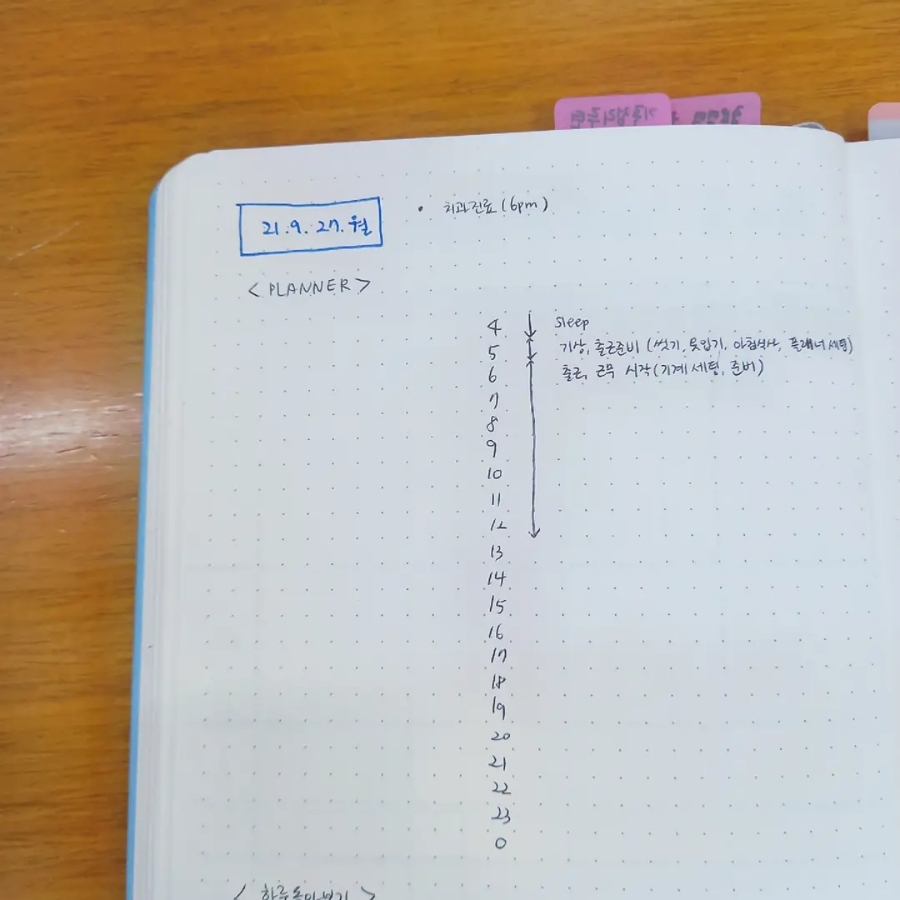 21.9.27.월
• 치과진료 (6pm)
<PLANNER>
4 sleep
5 기상, 출근준비 (씻기, 옷입기, 아침식사, 플래너 세팅)
6 출근, 근무 시작 (기계 세팅, 준비)
7
8
9
10
11
12
13
14
15
16
17
18
19
20
21
22
23
0
<하루돌아보기>